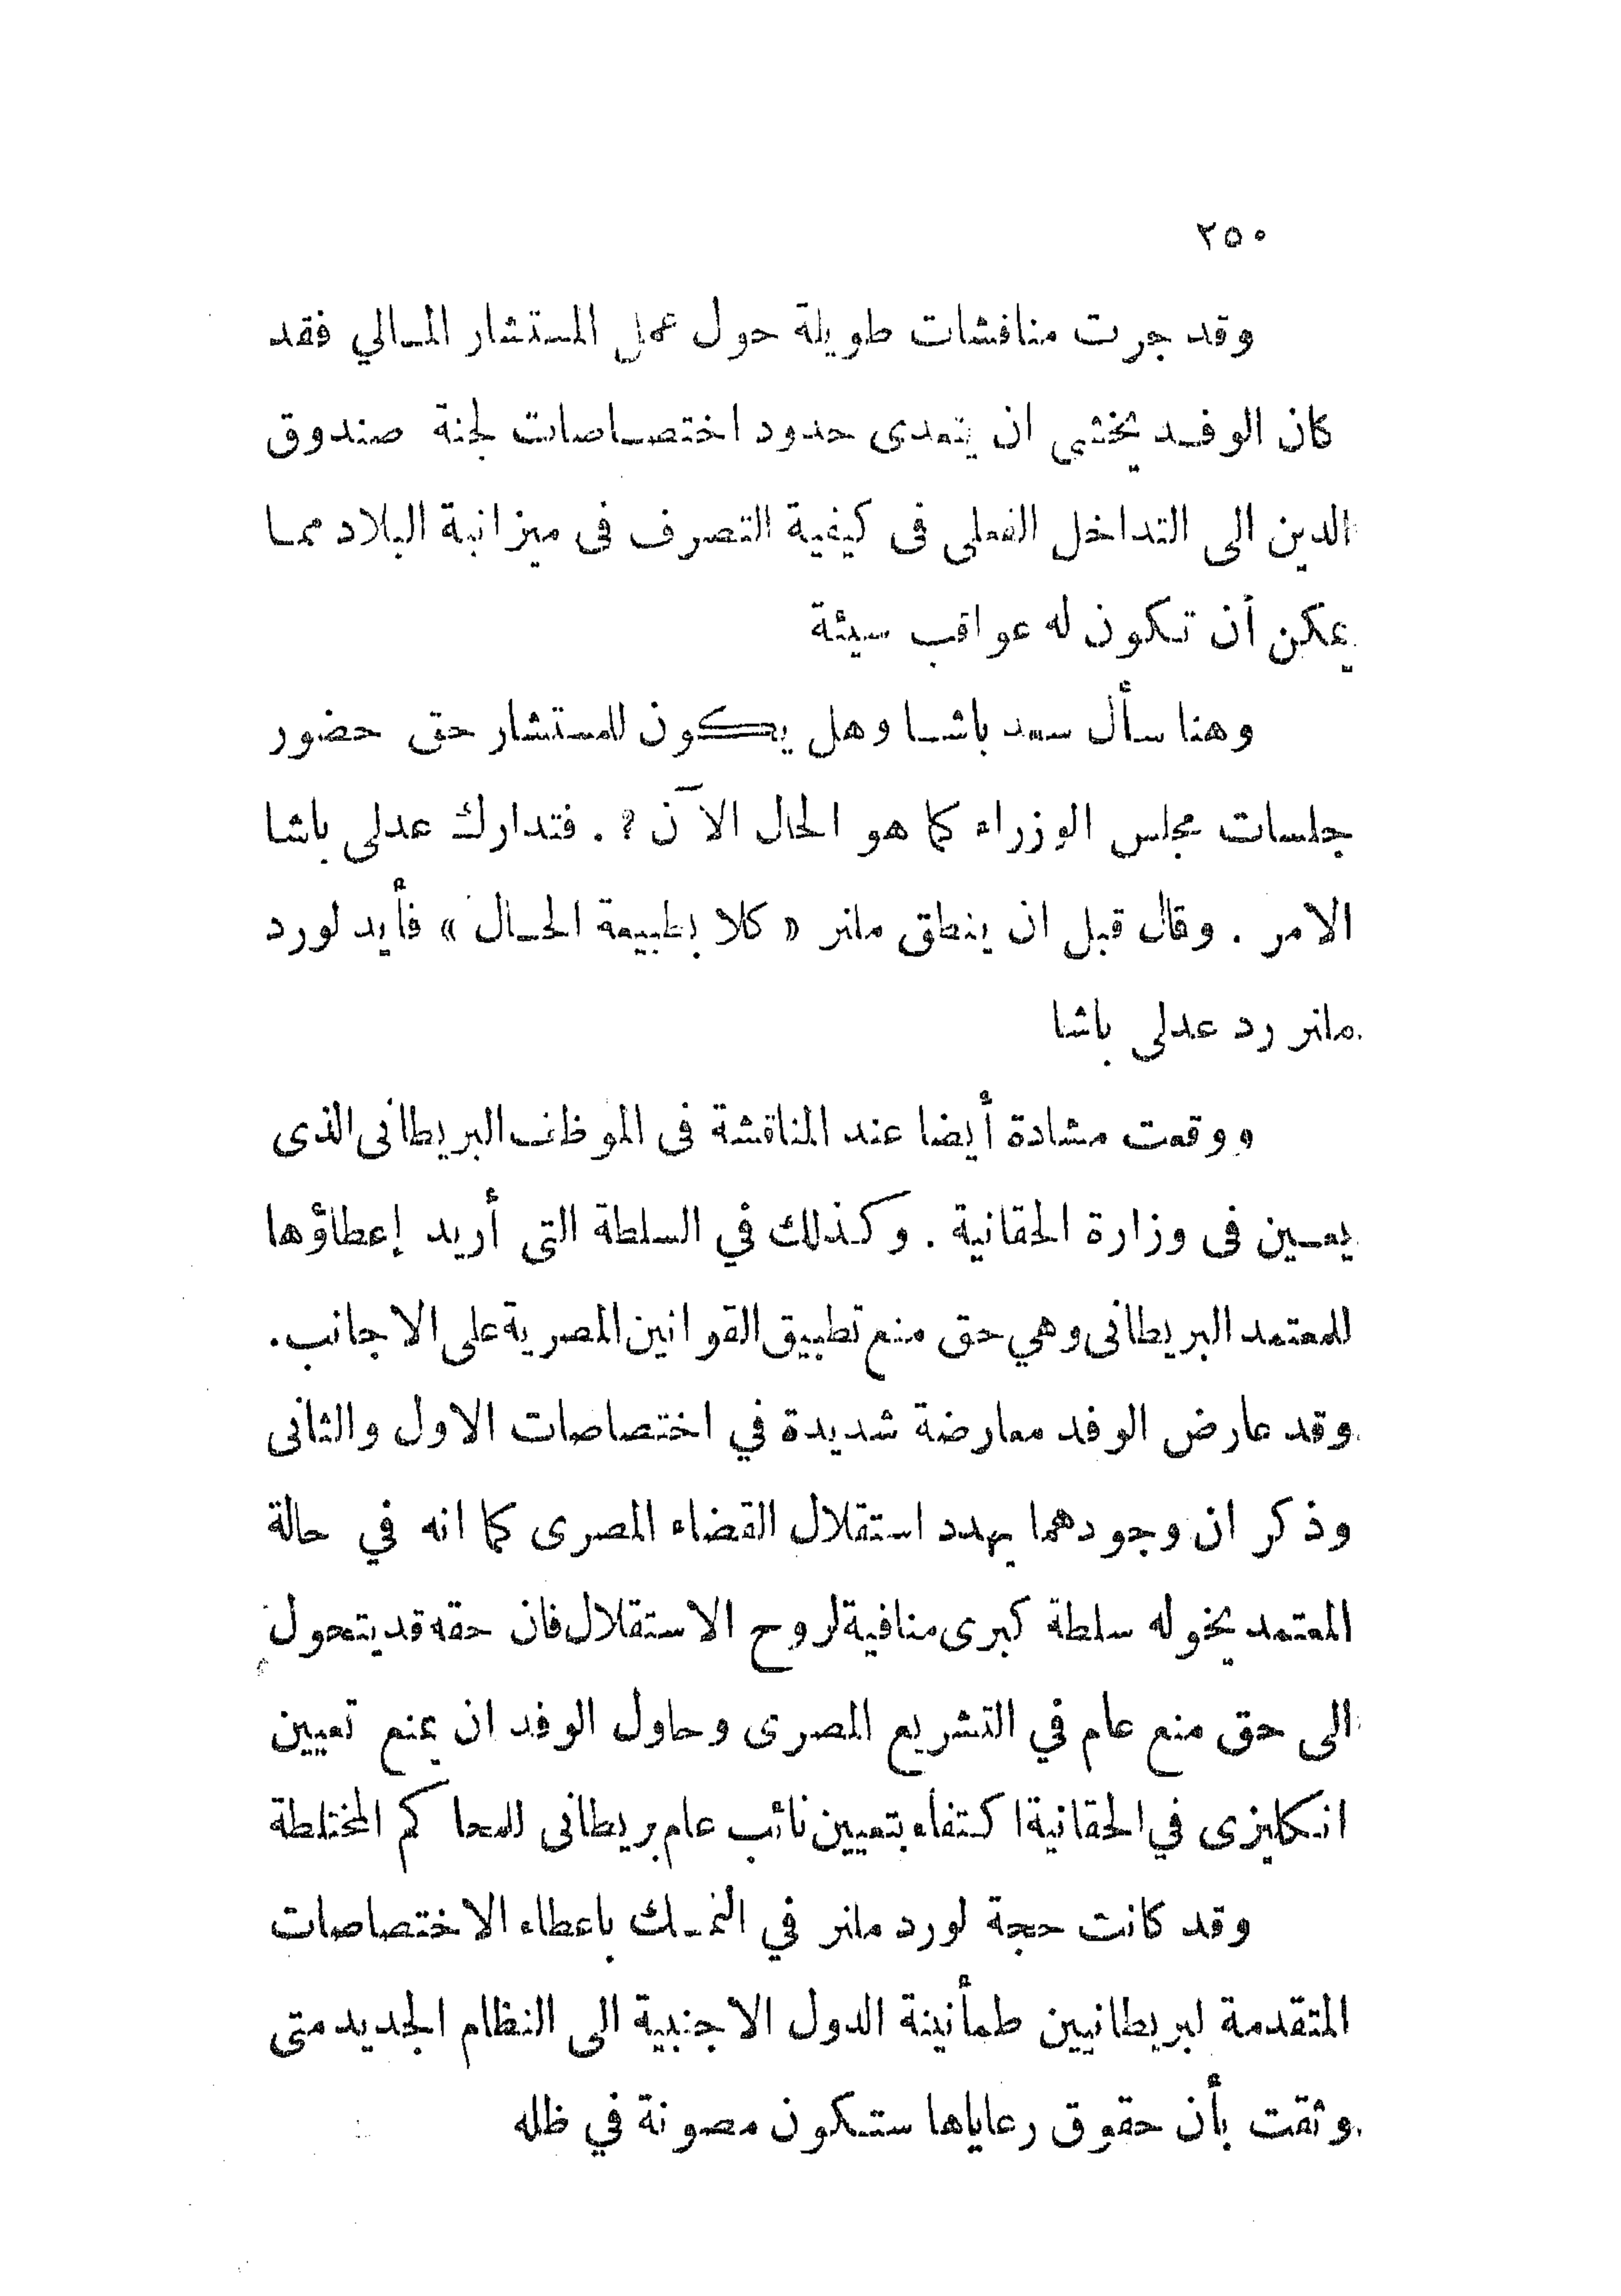 ٢٥٠
وقد جرت منافشات طويلة حول عمل المستشار المالي فقد
كان الوفد يخشى ان يتعدى حدود اختصاصات لجنة صندوق
الدين الى التداخل الفعلى فى كيفية التصرف فى ميزانية البلاد مما
يمكن أن تكون له عواقب سيئة
وهنا سأل سعد باشا وهل يكون للمستشار حق حضور
جلسات مجلس الوزراء كما هو الحال الآن ؟ . فتدارك عدلى باشا
الامر . وقال قبل ان ينطق ملنر « كلا بطبيعة الحال » فأيد لورد
ملنر رد عدلى باشا
ووقعت مشادة أيضا عند المناقشة فى الموظف البريطانى الذى
يعين فى وزارة الحقانية . وكذلك في السلطة التى أريد إعطاؤها
للمعتمد البريطانى وهي حق منع تطبيق القوانين المصرية على الاجانب.
وقد عارض الوفد معارضة شديدة في اختصاصات الاول والثانى
وذكر ان وجودهما يهدد استقلال القضاء المصرى كما انه في حالة
المعتمد يخوله سلطة كبرى منافية لروح الاستقلال فان حقه قد يتحول
الى حق منع عام في التشريع المصرى وحاول الوفد ان يمنع تعيين
انكليزى في الحقانية اكتفاء بتعيين نائب عام بريطانى للمحاكم المختلطة
وقد كانت حجة لورد ملنر في التمسك باعطاء الاختصاصات
المتقدمة لبريطانيين طمأنينة الدول الاجنبية الى النظام الجديد متى
وثقت بأن حقوق رعاياها ستكون مصونة في ظله